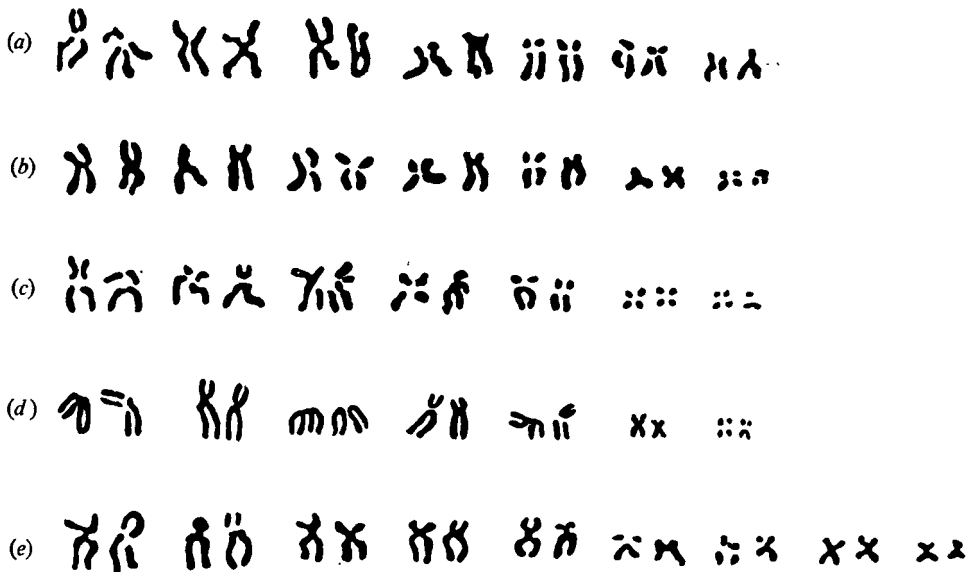 (a)
(b)
(c)
(d)
(e)